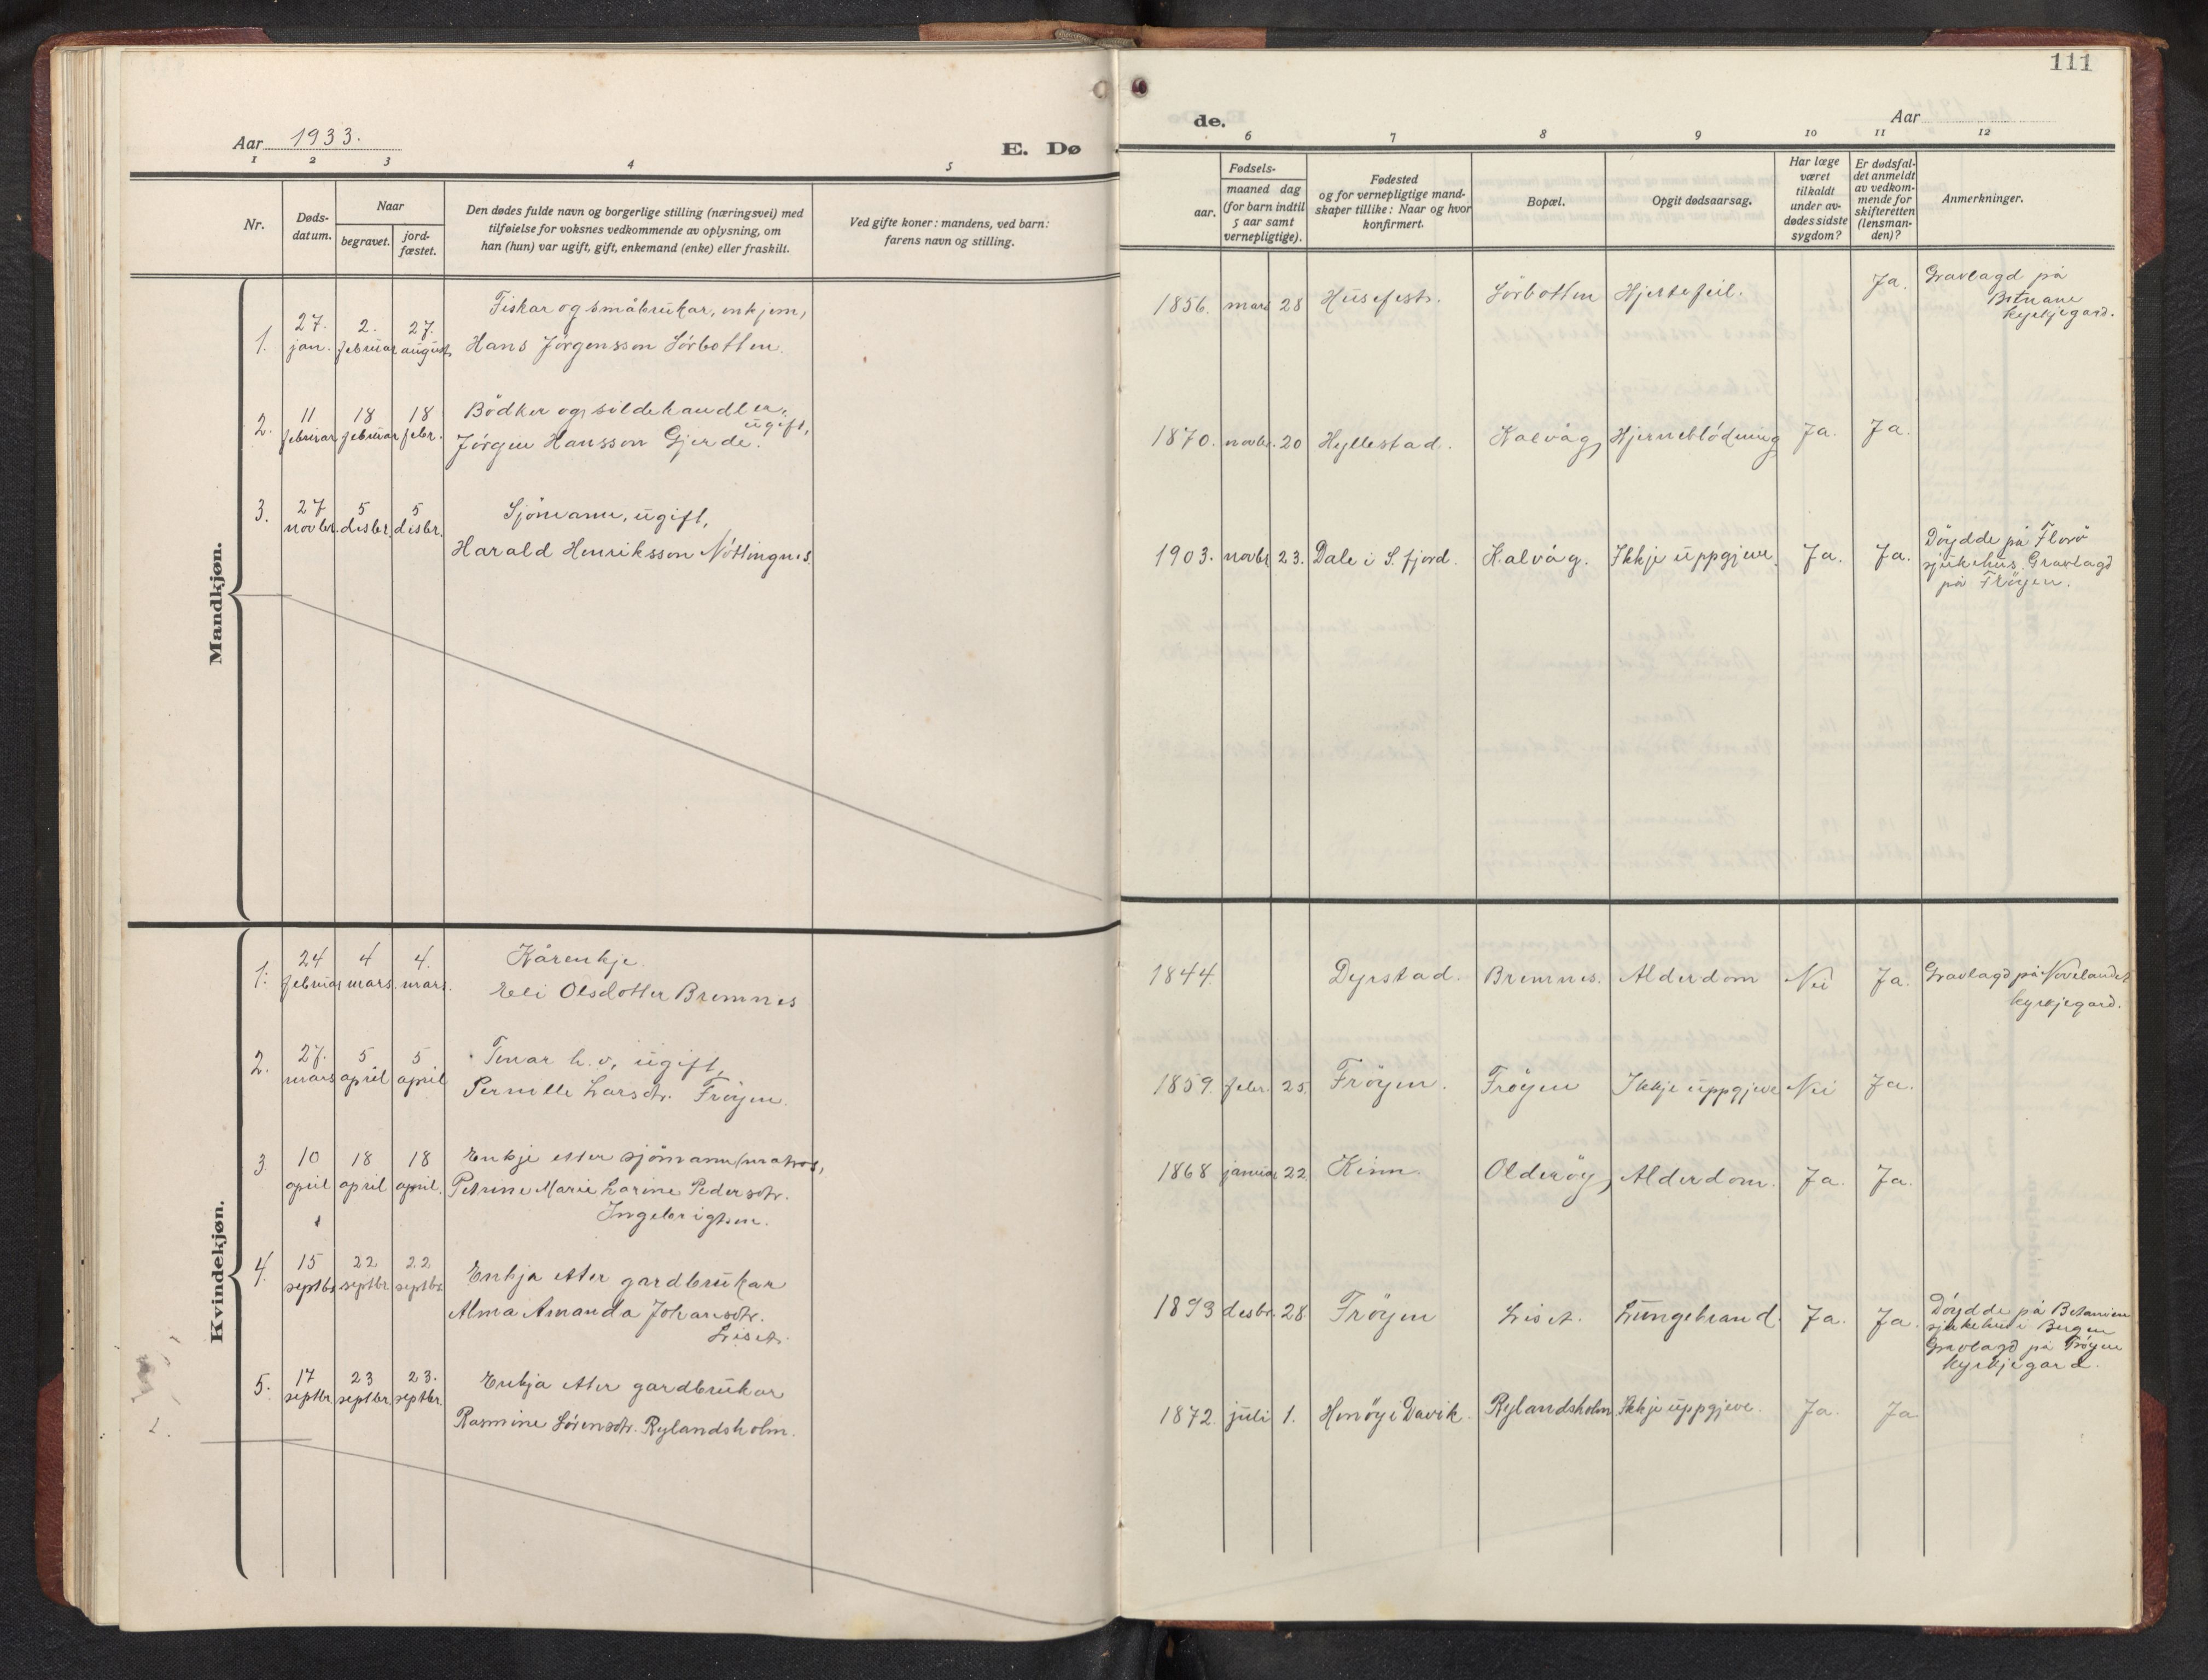 111
Aar 1933.
E. Dø
de.
Aar
1 2 3 4 5 6 7 8 9 10 11 12
Nr.
Døds-
datum.
Naar
begravet.
jord-
fæstet.
Den dødes fulde navn og borgerlige stilling (næringsvei) med
tilføielse for voksnes vedkommende av oplysning, om
han (hun) var ugift, gift, enkemand (enke) eller fraskilt.
Ved gifte koner: mandens, ved barn:
farens navn og stilling.
Fødsels-
aar.
maaned dag
(for barn indtil
5 aar samt
vernepligtige).
Fødested
og for vernepligtige mand-
skaper tillike: Naar og hvor
konfirmert.
Bopæl.
Opgit dødsaarsag.
Har læge
været
tilkaldt
under av-
dødes sidste
sygdom?
Er dødsfal-
det anmeldt
av vedkom-
mende for
skifteretten
(lensman-
den)?
Anmerkninger.
Mandkjøn.
1. 27. jan. 2. februar 27. august
Fiskar og småbrukar, enkjem,
Hans Jörgensson Sörbotten.
1856. mars 28 Husefest. Sörbotten Hjertefeil. Ja.
Gravlagd på
Betnane
kyrkjegard.
2. 11 februar 18 februar 18 febr.
Bödker og sildehandler,
ugift,
Jörgen Hansson Gjerde.
1870. novbr. 20 Hyllestad. Kalvåg, Hjerneblödning Ja. Ja.
3. 27 novbr. 5 desbr. 5 desbr.
Sjömann, ugift,
Harald Henriksson Nöttingnes.
1903. novbr 23. Dale i S. fjord. Kalvåg. Ikkje uppgjeve. Ja. Ja.
Döydde på Florö
sjukehus. Gravlagd
på Fröyen.
Kvindekjøn.
1. 24 februar 4 mars. 4. mars.
Kårenkje.
Eli Olsdotter Bremnes
1844. Dyrstad. Bremnes. Alderdom Nei Ja.
Gravlagd på Novelandet
kyrkjegard.
2. 27. mars 5 april 5 april
Tenar h. v., ugift,
Pernille Larsdtr. Fröyen.
1859. febr. 25. Fröyen. Fröyen Ikkje uppgjeve Nei Ja.
3. 10 april 18 april 18 april.
Enkje etter sjömann/matros,
Petrine Marie Larine Pedersdtr.
Ingebrigtsen.
1868 januar 22. Kinn. Olderöy, Alderdom. Ja. Ja.
4. 15 septbr 22 septbr 22 septbr
Enkja etter gardbrukar
Alma Amanda Johansdtr.
Liset.
1893 desbr. 28. Fröyen Liset. Lungebrand. Ja. Ja.
Döydde på Betanien
sjukehus i Bergen
Gravlagd på Fröyen
kyrkjegard.
5. 17 septbr. 23 septbr 23. septbr.
Enkja etter gardbrukar
Rasmine Sörensdtr. Rylandsholm.
1872. juli 1. Henöy i Davik. Rylandsholm Ikkje uppgjeve. Ja. Ja